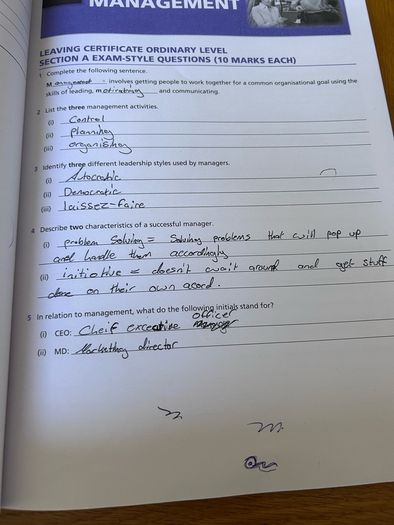 MANAGEMENT
LEAVING CERTIFICATE ORDINARY LEVEL
SECTION A EXAM-STYLE QUESTIONS (10 MARKS EACH)
1 Complete the following sentence.
Management involves getting people to work together for a common organisational goal using the
skills of leading, motivating and communicating.
2 List the three management activities.
(i) Control
(ii) planning
(iii) organising
3 Identify three different leadership styles used by managers.
(i) Autocratic
(ii) Democratic
(iii) laissez-faire
4 Describe two characteristics of a successful manager.
(i) problem Solving = Solving problems that will pop up
and handle them accordingly
(ii) initiative = doesn't wait around and get stuff
done on their own acord.
5 In relation to management, what do the following initials stand for?
officer
(i) CEO: Cheif executive
(ii) MD: Marketing director